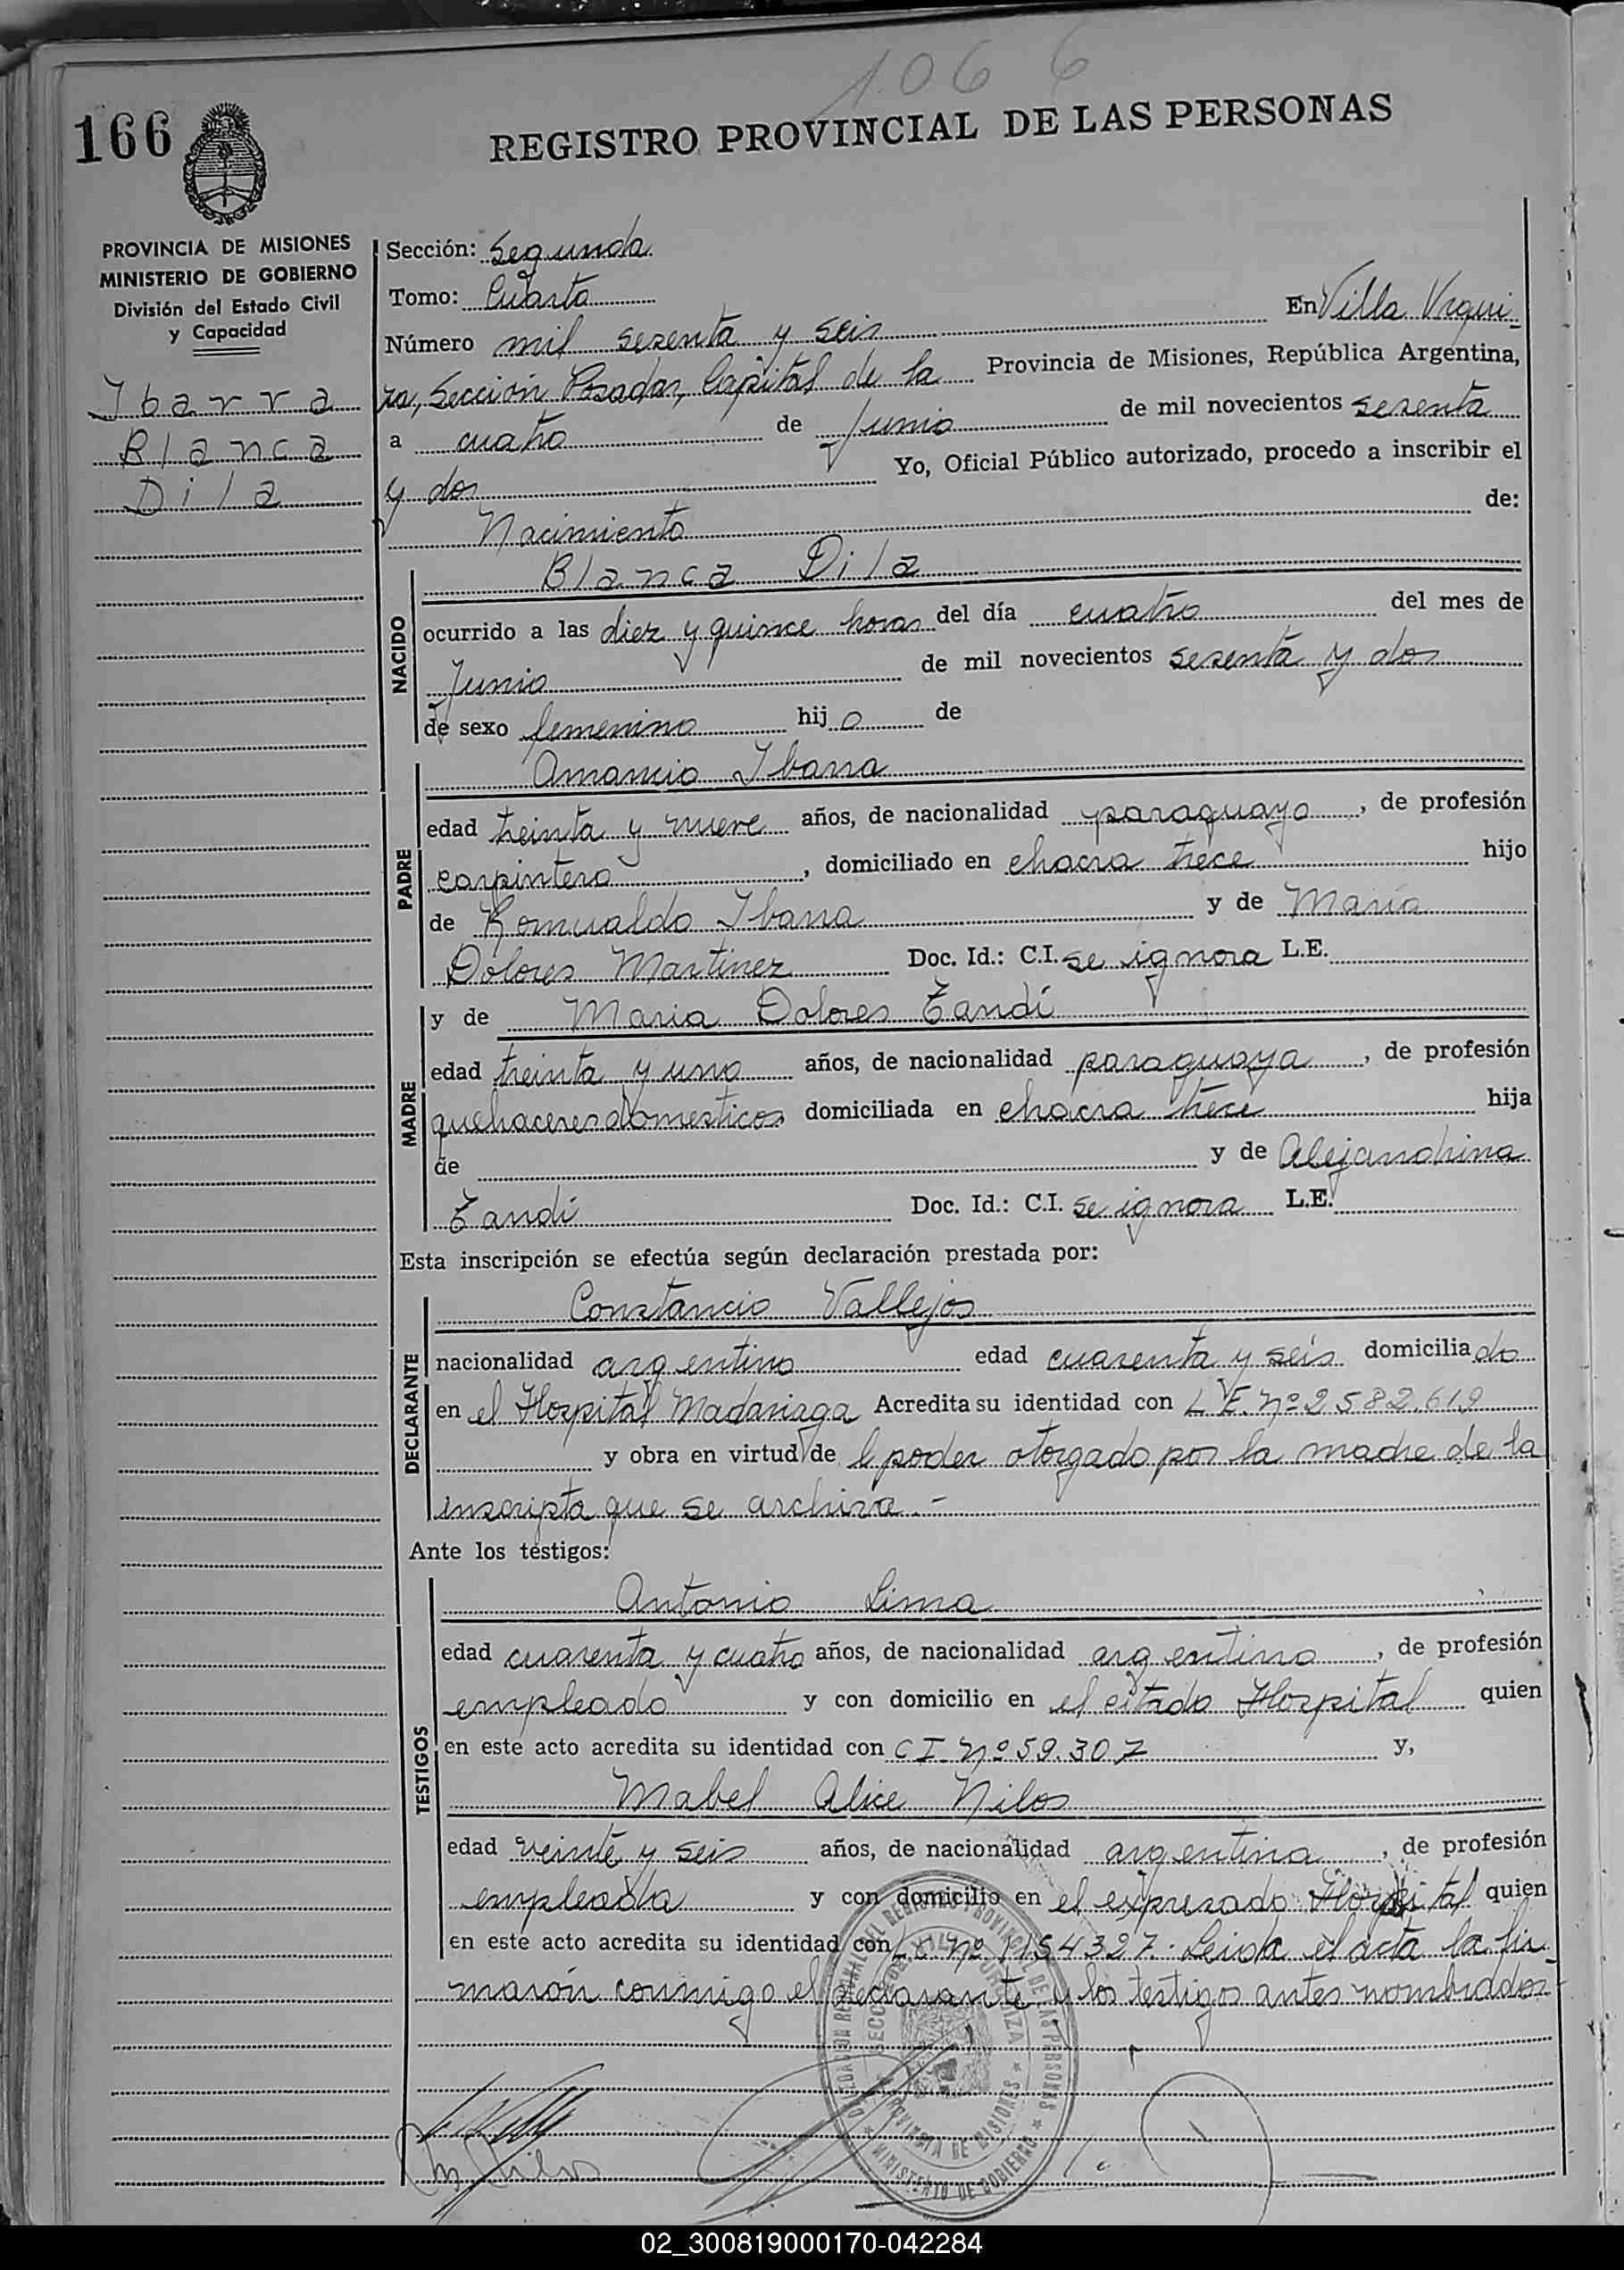 106 6
166
REGISTRO PROVINCIAL DE LAS PERSONAS
PROVINCIA DE MISIONES
MINISTERIO DE GOBIERNO
División del Estado Civil
y Capacidad
Ibarra
Blanca
Dila
Sección: Segunda
Tomo: Cuarto
Número mil sesenta y seis En Villa Urqui-
za, Sección Posadas, Capital de la Provincia de Misiones, República Argentina,
a cuatro de Junio de mil novecientos sesenta
y dos Yo, Oficial Público autorizado, procedo a inscribir el
Nacimiento de:
NACIDO
Blanca Dila
ocurrido a las diez y quince horas del día cuatro del mes de
Junio de mil novecientos sesenta y dos
de sexo femenino hijo de
PADRE
Amancio Ibarra
edad treinta y nueve años, de nacionalidad paraguayo, de profesión
carpintero, domiciliado en chacra trece hijo
de Romualdo Ibarra y de María
Dolores Martínez Doc. Id.: C.I. se ignora L.E.
MADRE
y de Maria Dolores Zandí
edad treinta y uno años, de nacionalidad paraguaya, de profesión
quehaceres domesticos domiciliada en chacra trece hija
de y de Alejandrina
Zandí Doc. Id.: C.I. se ignora L.E.
Esta inscripción se efectúa según declaración prestada por:
DECLARANTE
Constancio Vallejos
nacionalidad argentino edad cuarenta y seis domiciliado
en el Hospital Madariaga Acredita su identidad con L.E. Nº 2582.619
y obra en virtud de l poder otorgado por la madre de la
inscripta que se archiva.-
Ante los testigos:
TESTIGOS
Antonio Lima
edad cuarenta y cuatro años, de nacionalidad argentino, de profesión
empleado y con domicilio en el citado Hospital quien
en este acto acredita su identidad con C I. Nº 59.307 y,
Mabel Alice Nilos
edad veinte y seis años, de nacionalidad argentina, de profesión
empleada y con domicilio en el expresado Hospital quien
en este acto acredita su identidad con Nº 1154327. Leida el acta la fir-
maron conmigo el declarante y los testigos antes nombrados-
DEL REGISTRO PROVINCIAL DE LAS PERSONAS
PROVINCIA DE MISIONES
MINISTERIO DE GOBIERNO
02_300819000170-042284